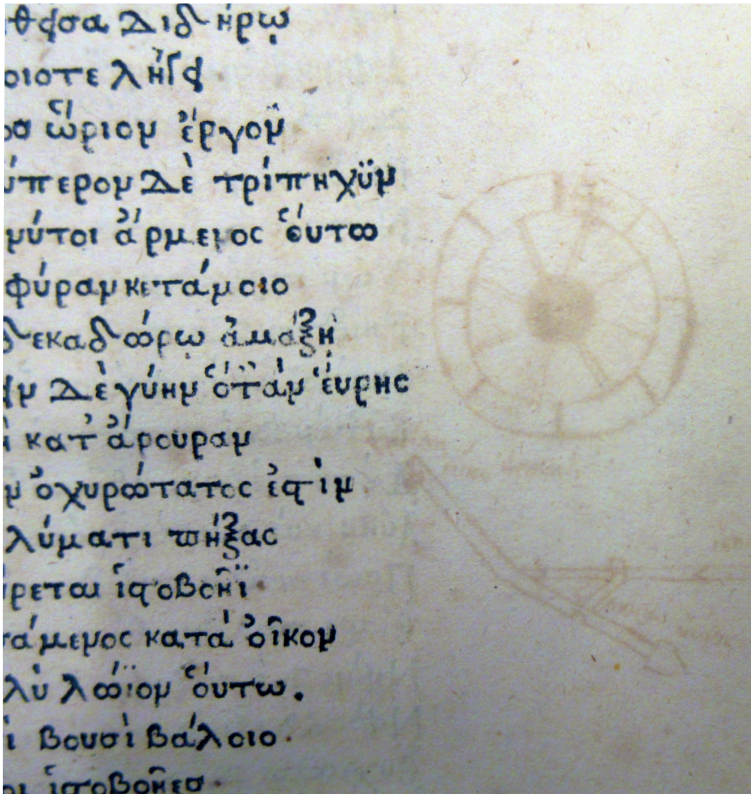 θεῖσα Διδήρῳ
οιοτε λήγει
ὥριον ἔργον
ύπερον Δὲ τρίπηχϋν
νύτοι ἄρμενος ὅυτω
φύρανκετάμοιο
δεκαδώρῳ ἀμάξη
ιν Δὲ γύην ὅτὰν ἕυρης
ὶ κατ' ἄρουραν
ν ὀχυρώτατος ἐστὶν
λύματι πήξας
ρεται ἱστοβοῆϊ
σάμενος κατὰ οἶκον
λὺ λώϊον ὅυτω.
ὶ βουσὶ βάλοιο·
οι ἱστοβοῆεσ·